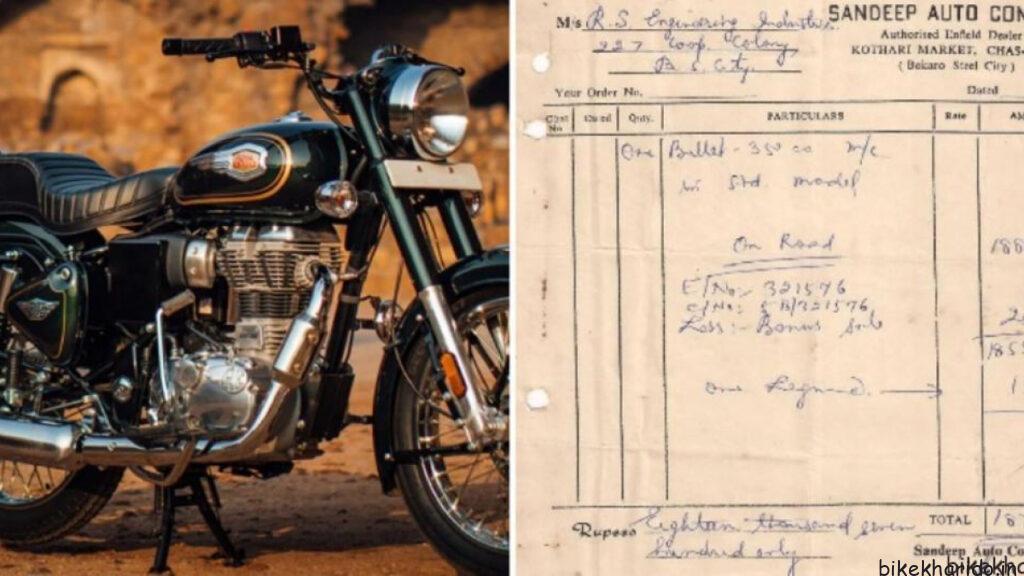 M/s R. S. Engineering Industries
227 Coop. Colony
B. S. City
SANDEEP AUTO CON
Authorised Enfield Dealer
KOTHARI MARKET, CHAS-
( Bokaro Steel City )
Your Order No.
Dated
Chal No
Dated
Qnty.
PARTICULARS
Rate
AM
One Bullet - 350 cc m/c
Std. model
On Road
188
E/No:- 321576
C/No:- 5 B/321576
Less:- Bonus
2
185
One Legguard
1
Rupees Eighteen thousand seven
hundred only
TOTAL
187
Sandeep Auto Co
bikekharido.in